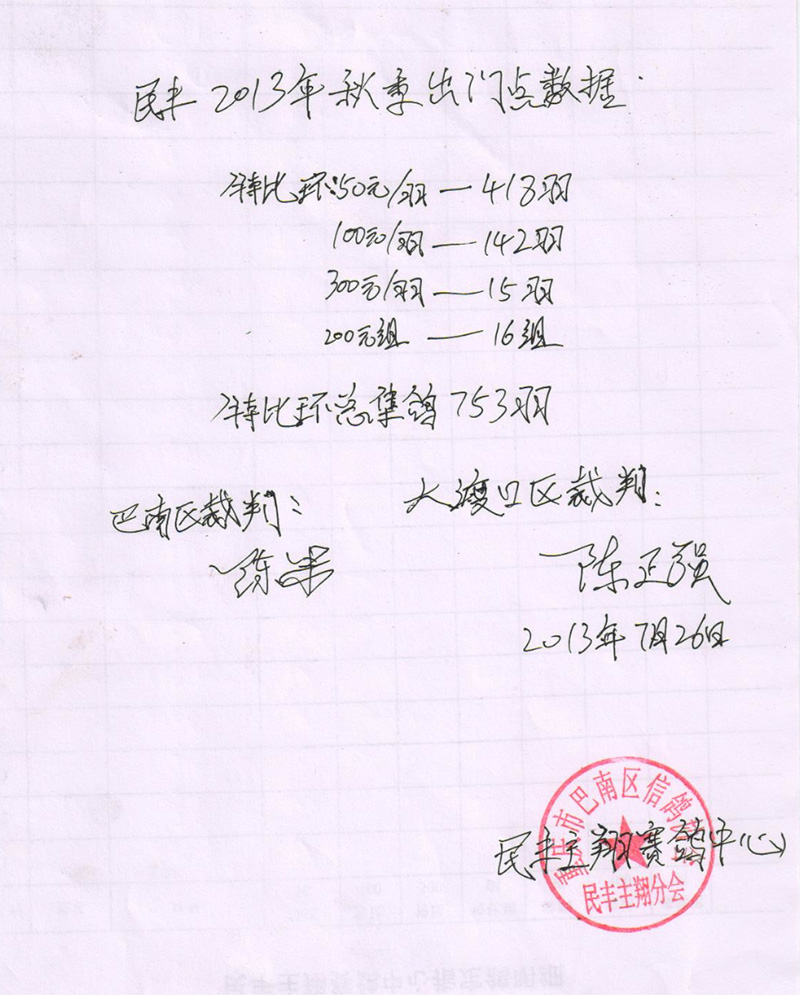 民丰2013年秋季出门点数据.
特比环:50元/羽—418羽
100元/羽—142羽
300元/羽—15羽
200元组—16组
特比环总集鸽753羽
巴南区裁判:
大渡口区裁判:
陈正强
2013年7月26日
民丰主翔赛鸽中心
重庆市巴南区信鸽协会
民丰主翔分会